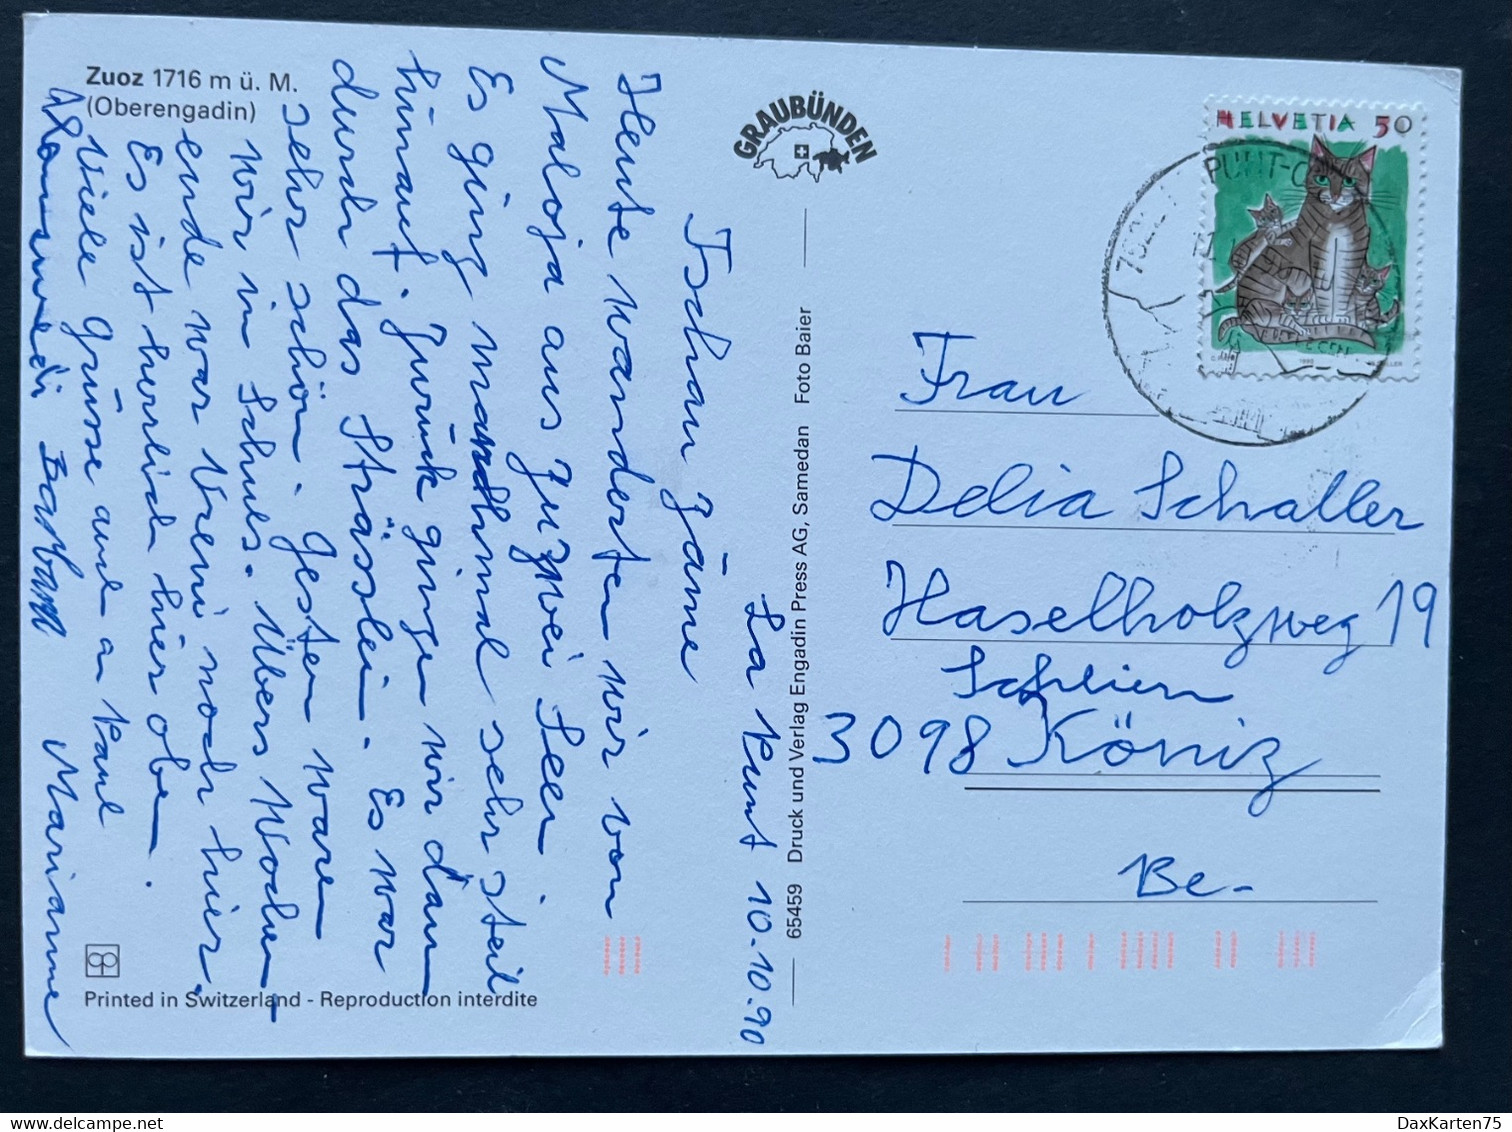 Zuoz 1716 m ü. M.
(Oberengadin)
GRAUBÜNDEN
HELVETIA 50
La Punt 10.10.90
Tschau Zäme
Heute wanderten wir von
Maloja aus zu zwei Seen
Es ging manchmal sehr steil
hinauf. Zurück gingen wir dann
durch das Strässlein. Es war
sehr schön. Gestern waren
wir in Schuls. Übers Wochen-
ende war Vreni noch hier.
Es ist herrlich hier oben.
Viele Grüsse auch an Paul
Barbara Marianne
Frau
Delia Schaller
Haselholzweg 19
Schliern
3098 Köniz
Be-
65459 Druck und Verlag Engadin Press AG, Samedan Foto Baier
Printed in Switzerland - Reproduction interdite
DaxKarten75
delcampe.net